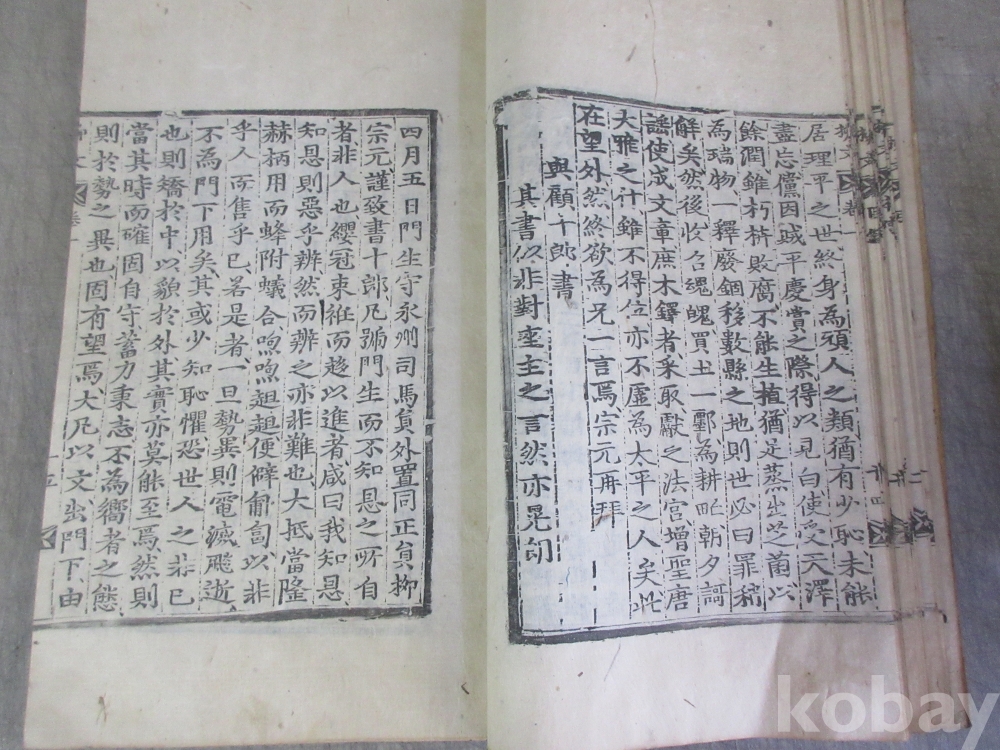 居理平之世終身為頑人之類猶有少恥未能
盡忘儻因賊平慶賞之際得以見白使受天澤
餘潤雖朽枿敗腐不能生植猶足蒸出芝菌以
為瑞物一釋廢錮移數縣之地則世必曰罪稍
解矣然後收召魂魄買土一鄽為耕甿朝夕謌
謡使成文章庶木鐸者采取獻之法宮增聖唐
大雅之什雖不得位亦不虛為太平之人矣此
在望外然終欲為兄一言焉宗元再拜
與顧十郎書
其書似非對座主之言然亦
四月五日門生守永州司馬負外置同正負柳
宗元謹致書十郎凡號門生而不知恩之所自
者非人也纓冠束袵而趨以進者咸曰我知恩
知恩則惡乎辨然而辨之亦非難也大抵當隆
赫柄用而蜂附蟻合喣喣趄趄便僻匍匐以非
乎人而售乎已若是者一旦勢異則電滅飈逝
不為門下用矣其或少知恥懼恐世人之非已
也則矯於中以貌於外其實亦莫能至焉然則
當其時而確固自守蓄力秉志不為嚮者之態
則於勢之異也固有望焉大凡以文出門下由
kobay